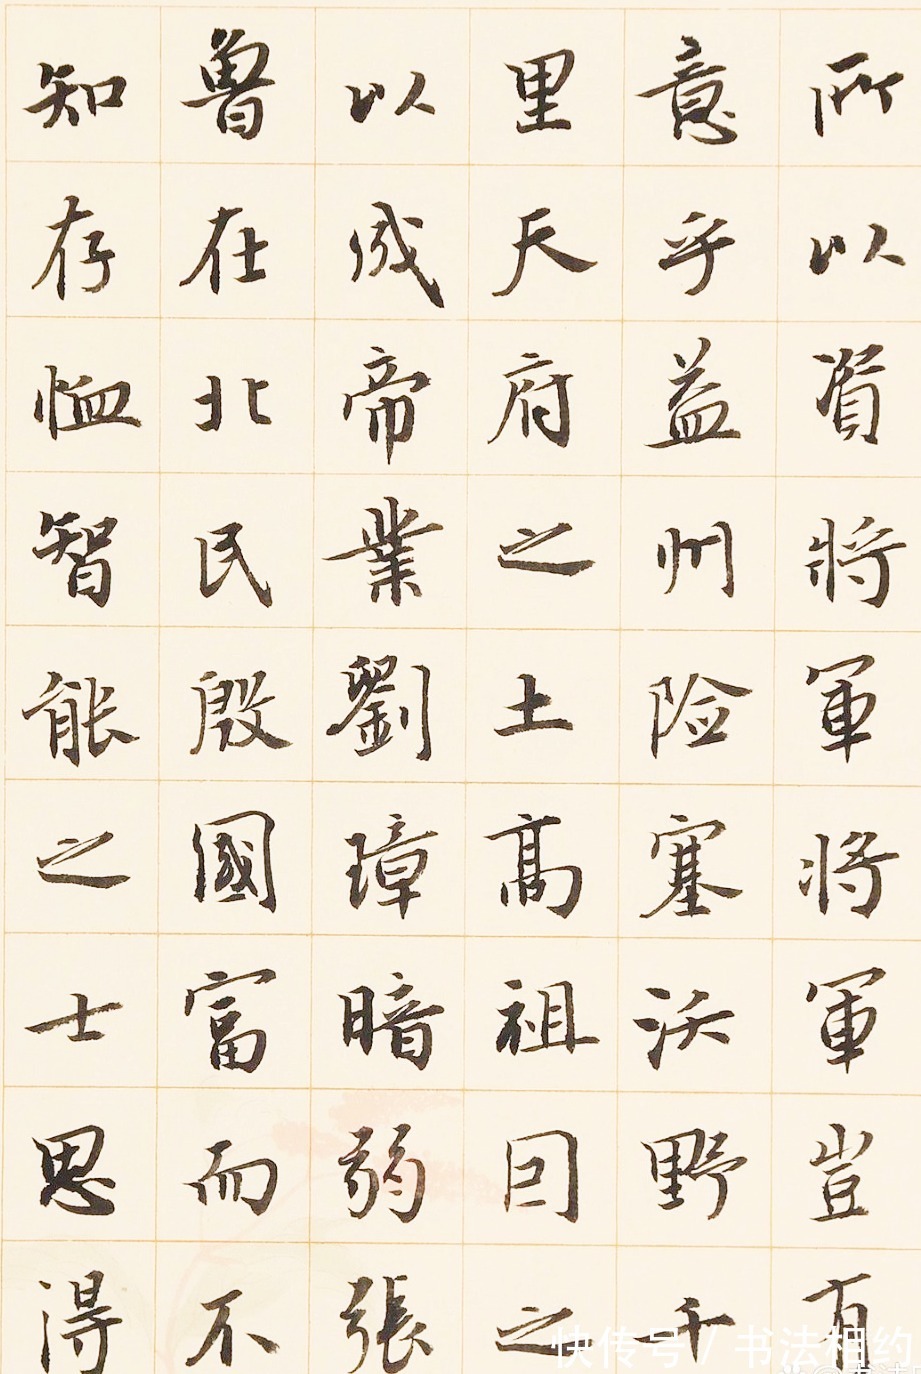 所以資將軍將軍豈有
意乎益州险塞沃野千
里天府之土高祖囙之
以成帝業劉璋暗弱張
魯在北民殷國富而不
知存恤智能之士思得
快传号 / 书法相约